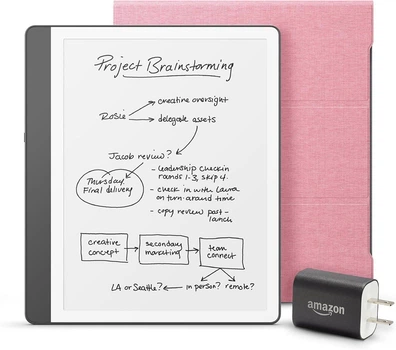 Project Brainstorming
Rosie
creative oversight
delegate assets
Jacob review?
Thursday
Final delivery
- leadership checkin
rounds 1-3, skip 4.
- check in with Laura
on turn-around time
- copy review post-
launch
creative
concept
secondary
marketing
team
connect
LA or Seattle?
in person?
remote?
amazon